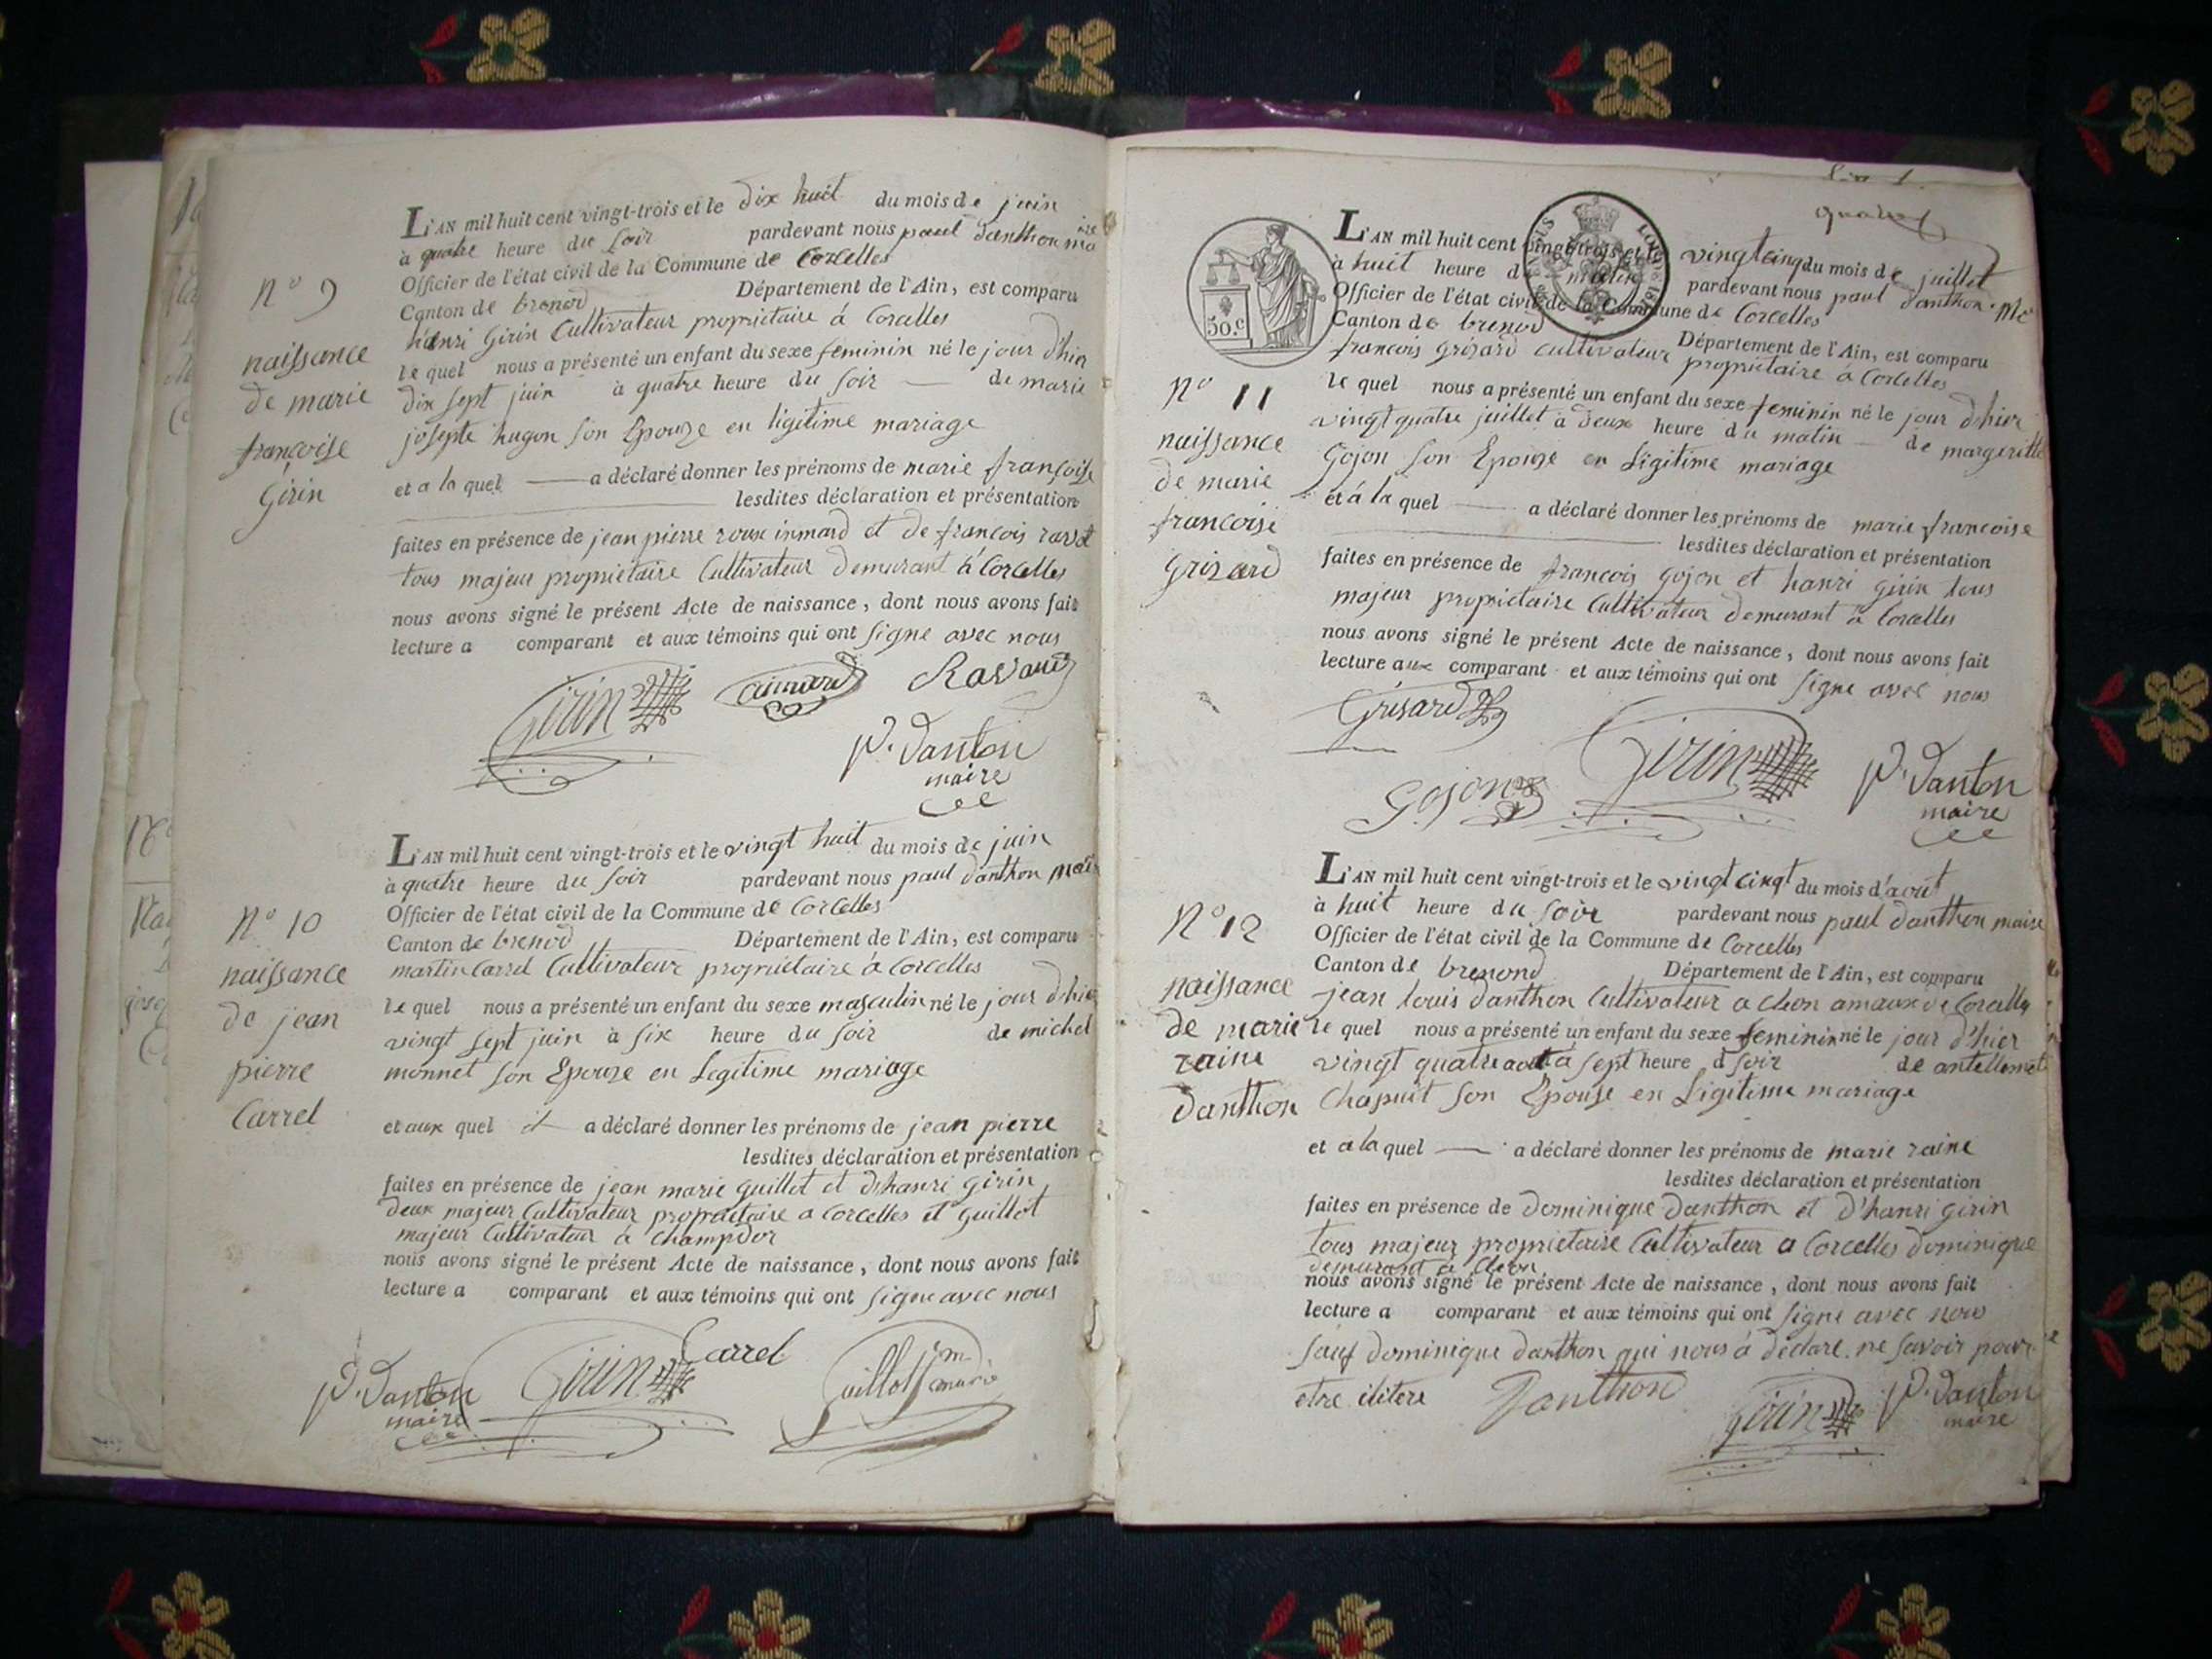 L'AN mil huit cent vingt-trois et le dix huit du mois de juin
à quatre heure du soir pardevant nous paul danthon maire
Officier de l'état civil de la Commune de Corcelles
Canton de brenod Département de l'Ain, est comparu
hanri Girin Cultivateur propriétaire á Corcelles
le quel nous a présenté un enfant du sexe feminin né le jour d'hier
dix sept juin à quatre heure du soir — de marie
josepte hugon son Epouze en ligitime mariage
et a la quel — a déclaré donner les prénoms de marie françoise
lesdites déclaration et présentation
faites en présence de jean pierre roux inmard et de francois
tous majeur propriétaire Cultivateur demurant á Corcelles
nous avons signé le présent Acte de naissance, dont nous avons fait
lecture a comparant et aux témoins qui ont signe avec nous
N° 9
naissance
de marie
françoise
Girin
Girin
P. Danton
maire
L'AN mil huit cent vingt-trois et le vingt huit du mois de juin
à quatre heure du soir pardevant nous paul danthon maire
Officier de l'état civil de la Commune de Corcelles
Canton de brenod Département de l'Ain, est comparu
martin Carrel Cultivateur propriétaire á Corcelles
le quel nous a présenté un enfant du sexe masculin né le jour d'hier
vingt sept juin à six heure du soir de michel
monnet son Epouze en Legitime mariage
et aux quel il a déclaré donner les prénoms de jean pierre
lesdites déclaration et présentation
faites en présence de jean marie guillot et d'hanri girin
deux majeur Cultivateur propriétaire a Corcelles et guillot
majeur Cultivateur á Champdor
nous avons signé le présent Acte de naissance, dont nous avons fait
lecture a comparant et aux témoins qui ont signe avec nous
N° 10
naissance
de jean
pierre
Carrel
P. Danton
maire
Girin
Carrel
Guillot
L'AN mil huit cent vingt-trois et le vingt cinq du mois de juillet
à huit heure du matin pardevant nous paul danthon
Officier de l'état civil de la Commune de Corcelles
Canton de brenod Département de l'Ain, est comparu
francois grizard cultivateur propriétaire á Corcelles
le quel nous a présenté un enfant du sexe feminin né le jour d'hier
vingt quatre juillet à deux heure du matin — de margeritte
Gojon son Epouze en Ligitime mariage
et á la quel — a déclaré donner les prénoms de marie francoise
lesdites déclaration et présentation
faites en présence de francois gojon et hanri girin tous
majeur propriétaire Cultivateur demurant á Corcelles
nous avons signé le présent Acte de naissance, dont nous avons fait
lecture aux comparant et aux témoins qui ont signe avec nous
50.c
N° 11
naissance
de marie
francoise
Grizard
Grisard
Gojon
Girin
P. Danton
maire
L'AN mil huit cent vingt-trois et le vingt cinqt du mois d'août
à huit heure du soir pardevant nous paul danthon maire
Officier de l'état civil de la Commune de Corcelles
Canton de brenond Département de l'Ain, est comparu
jean louis danthon Cultivateur a cleon amaux de Corcelles
le quel nous a présenté un enfant du sexe feminin né le jour d'hier
vingt quatre aout à sept heure d soir de antellemet
Chapuit son Epouse en Ligitime mariage
et a la quel — a déclaré donner les prénoms de marie raine
lesdites déclaration et présentation
faites en présence de dominique danthon et d'hanri girin
tous majeur propriétaire Cultivateur a Corcelles dominique
demurant á cleon
nous avons signé le présent Acte de naissance, dont nous avons fait
lecture a comparant et aux témoins qui ont signe avec nous
sauf dominique danthon qui nous á déclare ne savoir pour
etre iliterе
N° 12
naissance
de marie
raine
danthon
Danthon
Girin
P. Danton
maire